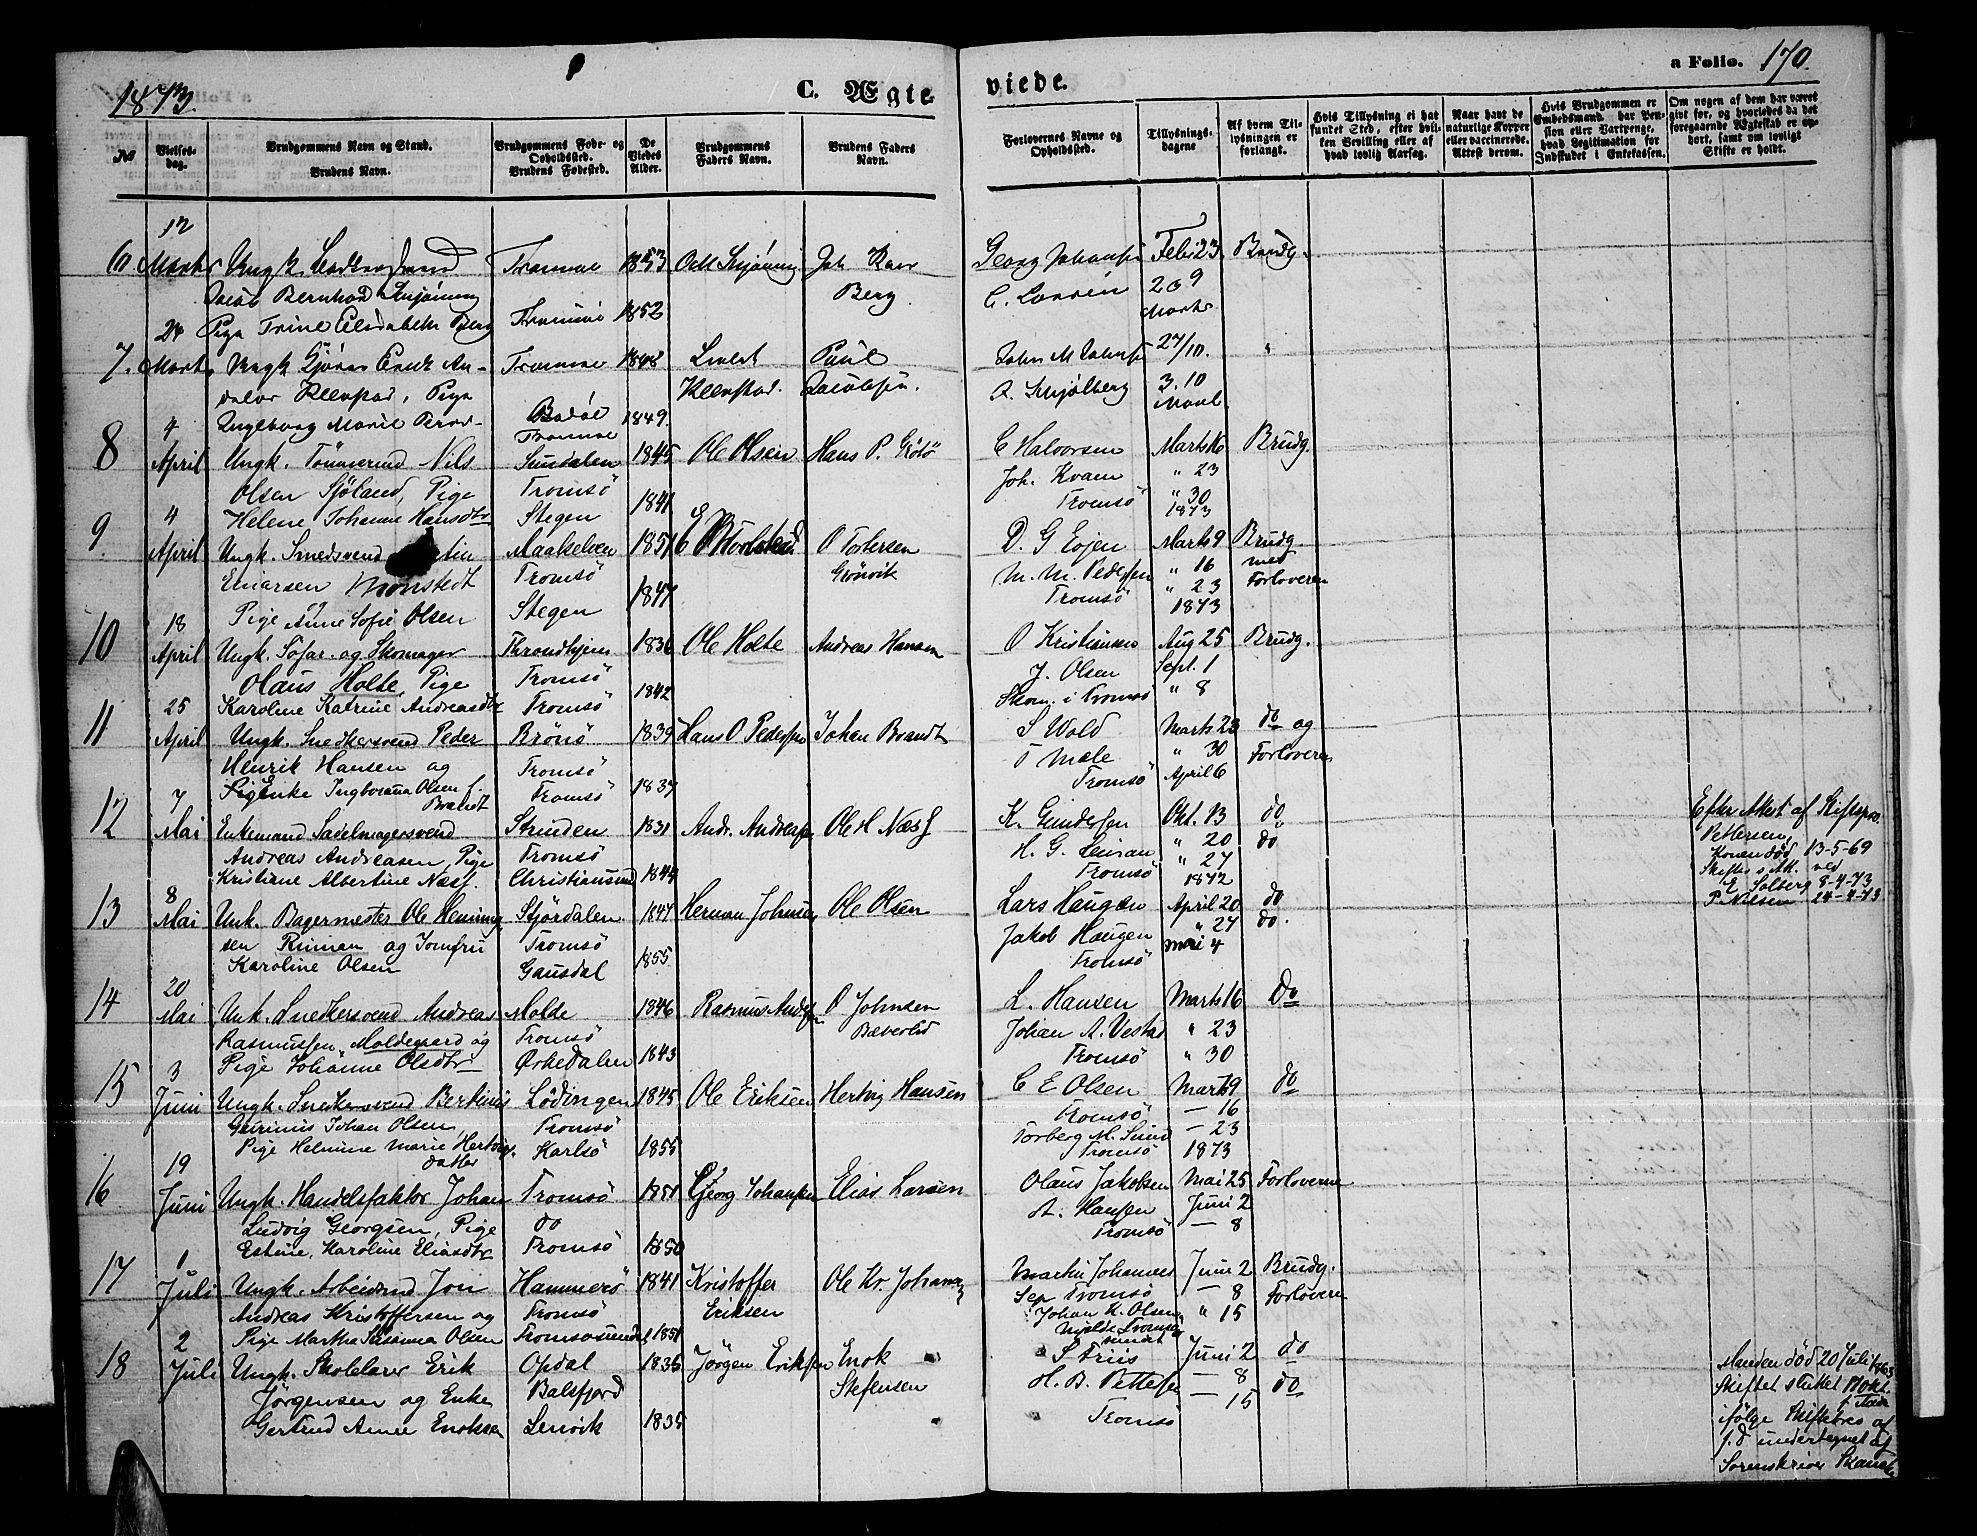 1873.
C. Ægte
viede.
a Folio. 170.
№
Vielses-
dag.
Brudgommens Navn og Stand.
Brudens Navn.
Brudgommens Føde- og
Opholdssted.
Brudens Fødested.
De
Viedes
Alder.
Brudgommens
Faders Navn.
Brudens Faders
Navn.
Forlovernes Navne og
Opholdssted.
Tillysnings-
dagene
Af hvem Til-
lysningen er
forlangt.
Hvis Tillysning ei har
fundet Sted, efter hvil-
ken Bevilling eller af
hvad lovlig Aarsag.
Naar havt de
naturlige Kopper
eller vaccinerede.
Attest derom.
Hvis Brudgommen er
Embedsmand, har Pen-
sion eller Vartpenge,
hvad Legitimation for
Indskudet i Enkekassen.
Om nogen af dem har været
gift før, og hvorledes da det
foregaaende Ægteskab er op-
hørt, samt om lovligt
Skifte er holdt.
12
6 Marts Ungk.
Jacob Bernhard
Pige Trine Elisabeth Berg
Tromsø
Tromsø
1853
1852
Berg.
Georg Johansen
C. Larsen
Feb. 23
2 o 9
Marts
Brudg.
24
7. Marts Ungk.
Pige
Ingeborg Marie
Tromsø
Bodøe
Tromsø
1848
1849.
Paul
Jacobsen.
27/10.
3. 10
"
4
8 April Ungk. Tømmermd Nils
Olsen Sjøland, Pige
Helene Johanne Hansdtr
Sundalen
Tromsö
Stegen
1845
1841
Ole Olsen
Hans P.
C Halvorsen
Joh. Kvam
Tromsö
Marts 16
" 23
" 30
1873
Brudg.
4
9 April Ungk. Smedsvend
Einarsen Mönstedt
Pige Anne Sofie Olsen
Maalselven
Tromsö
Stegen
1851
1847
O Tostersen
Grönvik
D. G Evjen
M. M. Pedersen
Tromsö
Marts 9
" 16
" 23
1873
Brudg.
med
Forloveren
18
10 April Ungk. Söfar. og Skomager
Olaus Holte, Pige
Karoline Katrine Andreasdtr
Throndhjem
Tromsö
Tromsö
1836
1842
Ole Holte
Andreas Hansen
O Kristiansen
J. Olsen
Skom. i Tromsö
Aug 25
Sept. 1
" 8
Brudg.
25
11 April Ungk. Snedkersvend Peder
Henrik Hansen og
Ingborana Olsen f.
Brandt
Brönö
Tromsö
Tromsö
1839
1837
Hans O Pedersen
Johan Brandt
S Wold
T Mæle
Tromsö
Marts 23
" 30
April 6
do og
Forloveren
7
12 Mai Enkemand Sadelmagersvend
Andreas Andreasen, Pige
Kristine Albertine Næss.
Strinden
Tromsö
Christiansund
1831
1844
Andr. Andreasen
Ole H Næss
K. Gundersen
H. G.
Tromsö
Okt. 13
" 20
" 27
1872
do
do
Efter Attest af Skiftspro.
Pettersen,
Konen död 13-5-69
Skiftes Att. ved
E Solberg 8-4-73
P Nilsen 24-4-73
8
13 Mai Unk. Bagermester Ole Henning
sen Rinnen og Jomfru
Karoline Olsen
Stjördalen
Tromsö
Gausdal
1847
1855
Herman Johnsen
Ole Olsen
Lars Haugen
Jakob Haugen
Tromsö
April 20
" 27
mai 4
do
do.
20
14 Mai Unk. Snedkersvend Andreas
Rasmussen Moldegaard og
Pige Johanne Olsdtr
Molde
Tromsö
Orkedalen
1846
1843
Rasmus Andersen
O Johnsen
Bæverlid
L. Hansen
Johan A. Vestad
Tromsö
Marts 16
" 23
" 30
Do
3
15 Juni Ungk. Snedkersvend Bertinus
Gunnius Johan Olsen,
Pige Helmine Marie Hertvigs.
datter
Lödingen
Tromsö
Karlsö
1845
1855
Ole Eriksen
Hertvig Hansen
C E Olsen
Tromsö
Torberg M. Sund
Tromsö
Marts 9
— 16
— 23
1873
do
19
16 Juni Ungk. Handelsfaktor Johan
Ludvig Georgsen, Pige
Estine Karoline Eliasdtr
Tromsö
do
Tromsö
1851
1850
Georg Johansen
Elias Larsen
Olaus Jakobsen
A. Hansen
Tromsö
Mai 25
Juni 2
— 8
Forloverne
1
17 Juli Ungk. Arbeidsmd Jon
Andreas Kristoffersen og
Pige Martha Susanna Olsen
Hammerö
Tromsö
Tromsösundet
1841
1851
Kristoffer
Eriksen
Ole Kr. Johansen
Martin Johannes
Sep Tromsö
Johan K. Olsen
Mjelde Tromsö
sundet
Juni 2
— 8
" 15
Brudg.
Forloveren
2
18 Juli Ungk. Skolelærer Erik
Jörgensen og Enke
Gertrud Anne Enoksen
Opdal
Balsfjord
Lenvik
1835
1835
Jörgen Eriksen
Enok
Steffensen
S Friis
H. B. Pettersen
Tromsö
Juni 2
— 8
— 15
do
do
Manden död 20 Juli 1863
Skiftet sluttet
ifölge Skiftebrev af
s. d undertegnet af
Sorenskriver